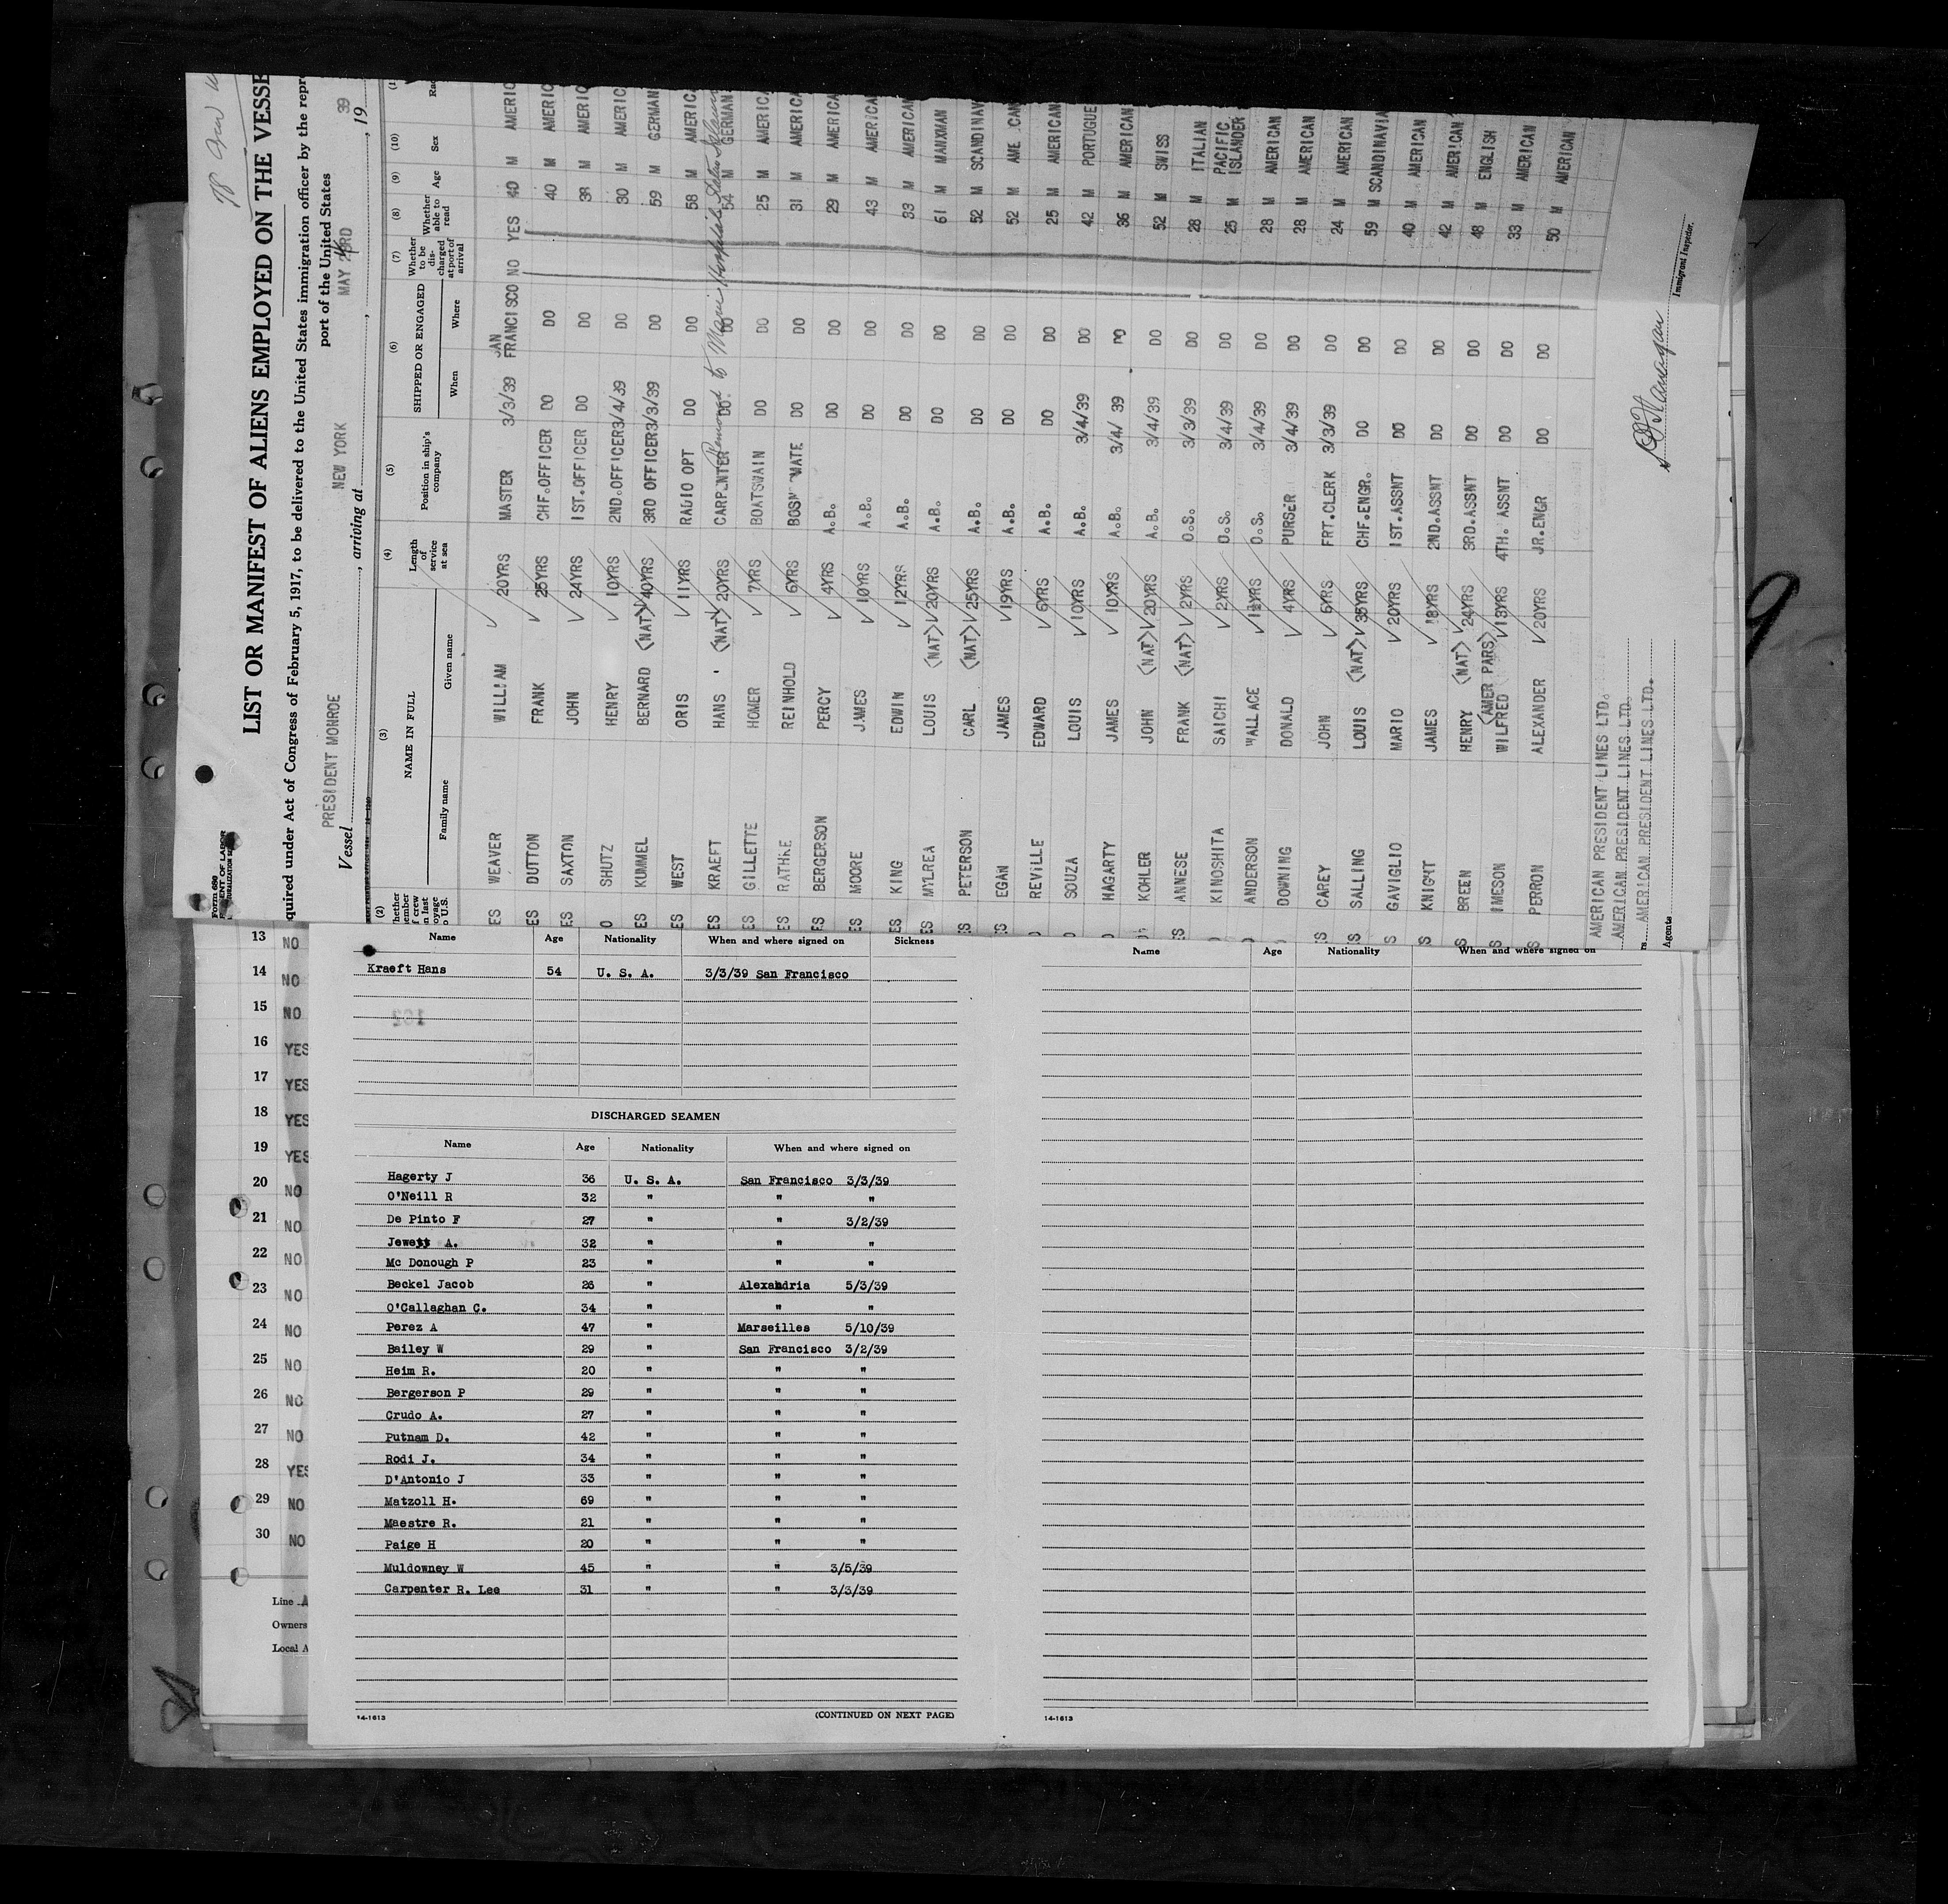 LIST OR MANIFEST OF ALIENS EMPLOYED ON THE VESSE
quired under Act of Congress of February 5, 1917, to be delivered to the United States immigration officer by the repr
port of the United States
Vessel PRESIDENT MONROE, arriving at NEW YORK, MAY RD, 19 39
Form 680
(2) (3) (4) (5) (6) (7) (8) (9) (10)
NAME IN FULL
Family name Given name
Length of service at sea
Position in ship's company
SHIPPED OR ENGAGED
When Where
Whether to be discharged at port of arrival
Whether able to read
Age Sex
ES WEAVER WILLIAM 20YRS MASTER 3/3/39 SAN FRANCISCO NO YES 40 M AMERIC
ES DUTTON FRANK 25YRS CHF.OFFICER DO DO 40 M AMERIC
ES SAXTON JOHN 24YRS 1ST.OFFICER DO DO 38 M AMERIC
O SHUTZ HENRY 10YRS 2ND.OFFICER 3/4/39 DO 30 M AMERIC
ES KUMMEL BERNARD (NAT) 40YRS 3RD OFFICER 3/3/39 DO 59 M GERMAN
ES WEST ORIS 11YRS RADIO OPT DO DO 58 M AMERIC
ES KRAEFT HANS (NAT) 20YRS CARPENTER DO DO 54 M GERMAN
Removed to Marine Hospital Staten Island
ES GILLETTE HOMER 7YRS BOATSWAIN DO DO 25 M AMERICA
ES RATHKE REINHOLD 6YRS BOSN MATE DO DO 31 M AMERICA
ES BERGERSON PERCY 4YRS A.B. DO DO 29 M AMERICA
ES MOORE JAMES 10YRS A.B. DO DO 43 M AMERICAN
ES KING EDWIN 12YRS A.B. DO DO 33 M AMERICAN
ES MYLREA LOUIS (NAT) 20YRS A.B. DO DO 61 M MANXMAN
ES PETERSON CARL (NAT) 25YRS A.B. DO DO 52 M SCANDINAV
ES EGAN JAMES 19YRS A.B. DO DO 52 M AME CAN
O REVILLE EDWARD 6YRS A.B. DO DO 25 M AMERICAN
SOUZA LOUIS 10YRS A.B. 3/4/39 DO 42 M PORTUGUE
HAGARTY JAMES 10YRS A.B. 3/4/39 DO 36 M AMERICAN
KOHLER JOHN (NAT) 20YRS A.B. 3/4/39 DO 52 M SWISS
ES ANNESE FRANK (NAT) 2YRS O.S. 3/3/39 DO 28 M ITALIAN
KINOSHITA SAICHI 2YRS O.S. 3/4/39 DO 25 M PACIFIC ISLANDER
ANDERSON WALLACE 1½YRS O.S. 3/4/39 DO 28 M AMERICAN
DOWNING DONALD 4YRS PURSER 3/4/39 DO 28 M AMERICAN
S CAREY JOHN 6YRS FRT.CLERK 3/3/39 DO 24 M AMERICAN
S SALLING LOUIS (NAT) 35YRS CHF.ENGR. DO DO 59 M SCANDINAVIA
S GAVIGLIO MARIO 20YRS 1ST.ASSNT DO DO 40 M AMERICAN
S KNIGHT JAMES 18YRS 2ND.ASSNT DO DO 42 M AMERICAN
S BREEN HENRY (NAT) 24YRS 3RD.ASSNT DO DO 48 M ENGLISH
S IMESON WILFRED (AMER PARS) 13YRS 4TH. ASSNT DO DO 33 M AMERICAN
S PERRON ALEXANDER 20YRS JR.ENGR DO DO 50 M AMERICAN
AMERICAN PRESIDENT LINES LTD.
AMERICAN PRESIDENT LINES LTD.
AMERICAN PRESIDENT LINES LTD.
Agents
Immigrant Inspector.
13 NO
14 NO
15 NO
16 YES
17 YES
18 YES
19 YES
20 NO
21 NO
22 NO
23 NO
24 NO
25 NO
26 NO
27 NO
28 YES
29 NO
30 NO
Line A
Owners
Local A
Name Age Nationality When and where signed on Sickness
Kraeft Hans 54 U. S. A. 3/3/39 San Francisco
DISCHARGED SEAMEN
Name Age Nationality When and where signed on
Hagerty J 36 U. S. A. San Francisco 3/3/39
O'Neill R 32 " " "
De Pinto F 27 " " 3/2/39
Jewett A. 32 " " "
Mc Donough P 23 " " "
Beckel Jacob 26 " Alexandria 5/3/39
O'Callaghan C. 34 " " "
Perez A 47 " Marseilles 5/10/39
Bailey W 29 " San Francisco 3/2/39
Heim R. 20 " " "
Bergerson P 29 " " "
Crudo A. 27 " " "
Putnam D. 42 " " "
Rodi J. 34 " " "
D'Antonio J 33 " " "
Matzoll H. 69 " " "
Maestre R. 21 " " "
Paige H 20 " " "
Muldowney W 45 " " 3/5/39
Carpenter R. Lee 31 " " 3/3/39
14-1613
(CONTINUED ON NEXT PAGE)
Name Age Nationality When and where signed on
14-1613